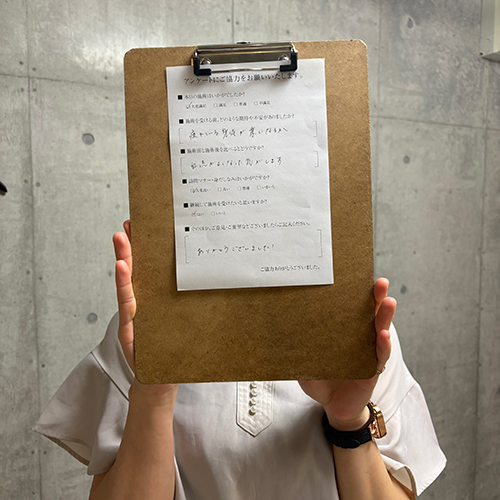 アンケートにご協力をお願いいたします。
■ 本日の施術はいかがでしたか？
☑大変満足 □満足 □普通 □不満足
■ 施術を受ける前、どのような期待や不安がありましたか？
■ 施術前と施術後を比べるとどうですか？
がよくなった気がします
■ 訪問マナー・身だしなみはいかがですか？
□良い □普通 □悪い
■ 継続して施術を受けたいと思いますか？
☑はい □いいえ
■ そのほか、ご意見・ご要望などございましたらご記入ください。
ありがとうございました!
ご協力ありがとうございました。